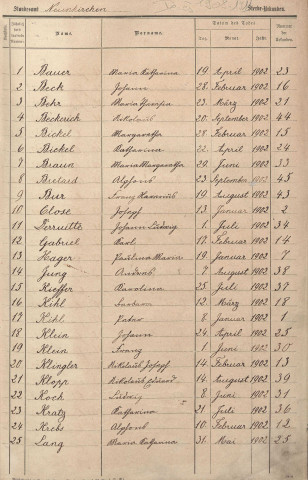 Standesamt Neunkirchen Sterbe-Urkunden
Name. Vorname. Datum des Todes Tag Monat Jahr
1 Bauer Maria Katharina 19 April 1902 23
2 Beck Johann 28 Februar 1902 16
3 Behr 23 März 1902 21
4 Beckerich Nikolaus 20 September 1902 44
5 Bickel Margaretha 28 Februar 1902 15
6 Bickel Catharina 22 April 1902 24
7 Braun Maria Margaretha 29 Juni 1902 33
8 Alphons 23 September 1902 45
9 Bur Franz 19 August 1902 43
10 Close Joseph 13 Januar 1902 2
11 Derruitte Johann Ludwig 1 Juli 1902 34
12 Gabriel Karl 17 Februar 1902 14
13 Hager Paulina Maria 19 Januar 1902 7
14 Jung Andreas 7 August 1902 38
15 Kieffer Carolina 25 Juli 1902 37
16 Kihl Barbara 12 März 1902 18
17 Kihl Peter 8 Januar 1902 1
18 Klein Johann 24 April 1902 25
19 Klein Franz 1 Juni 1902 30
20 Klingler Nikolaus Joseph 14 Februar 1902 13
21 Klopp Nikolaus Eduard 14 August 1902 39
22 Koch Ludwig 8 Juni 1902 31
23 Kratz Katharina 21 Juli 1902 36
24 Krebs Alphons 10 Februar 1902 12
25 Lang Maria Katharina 31 Mai 1902 25